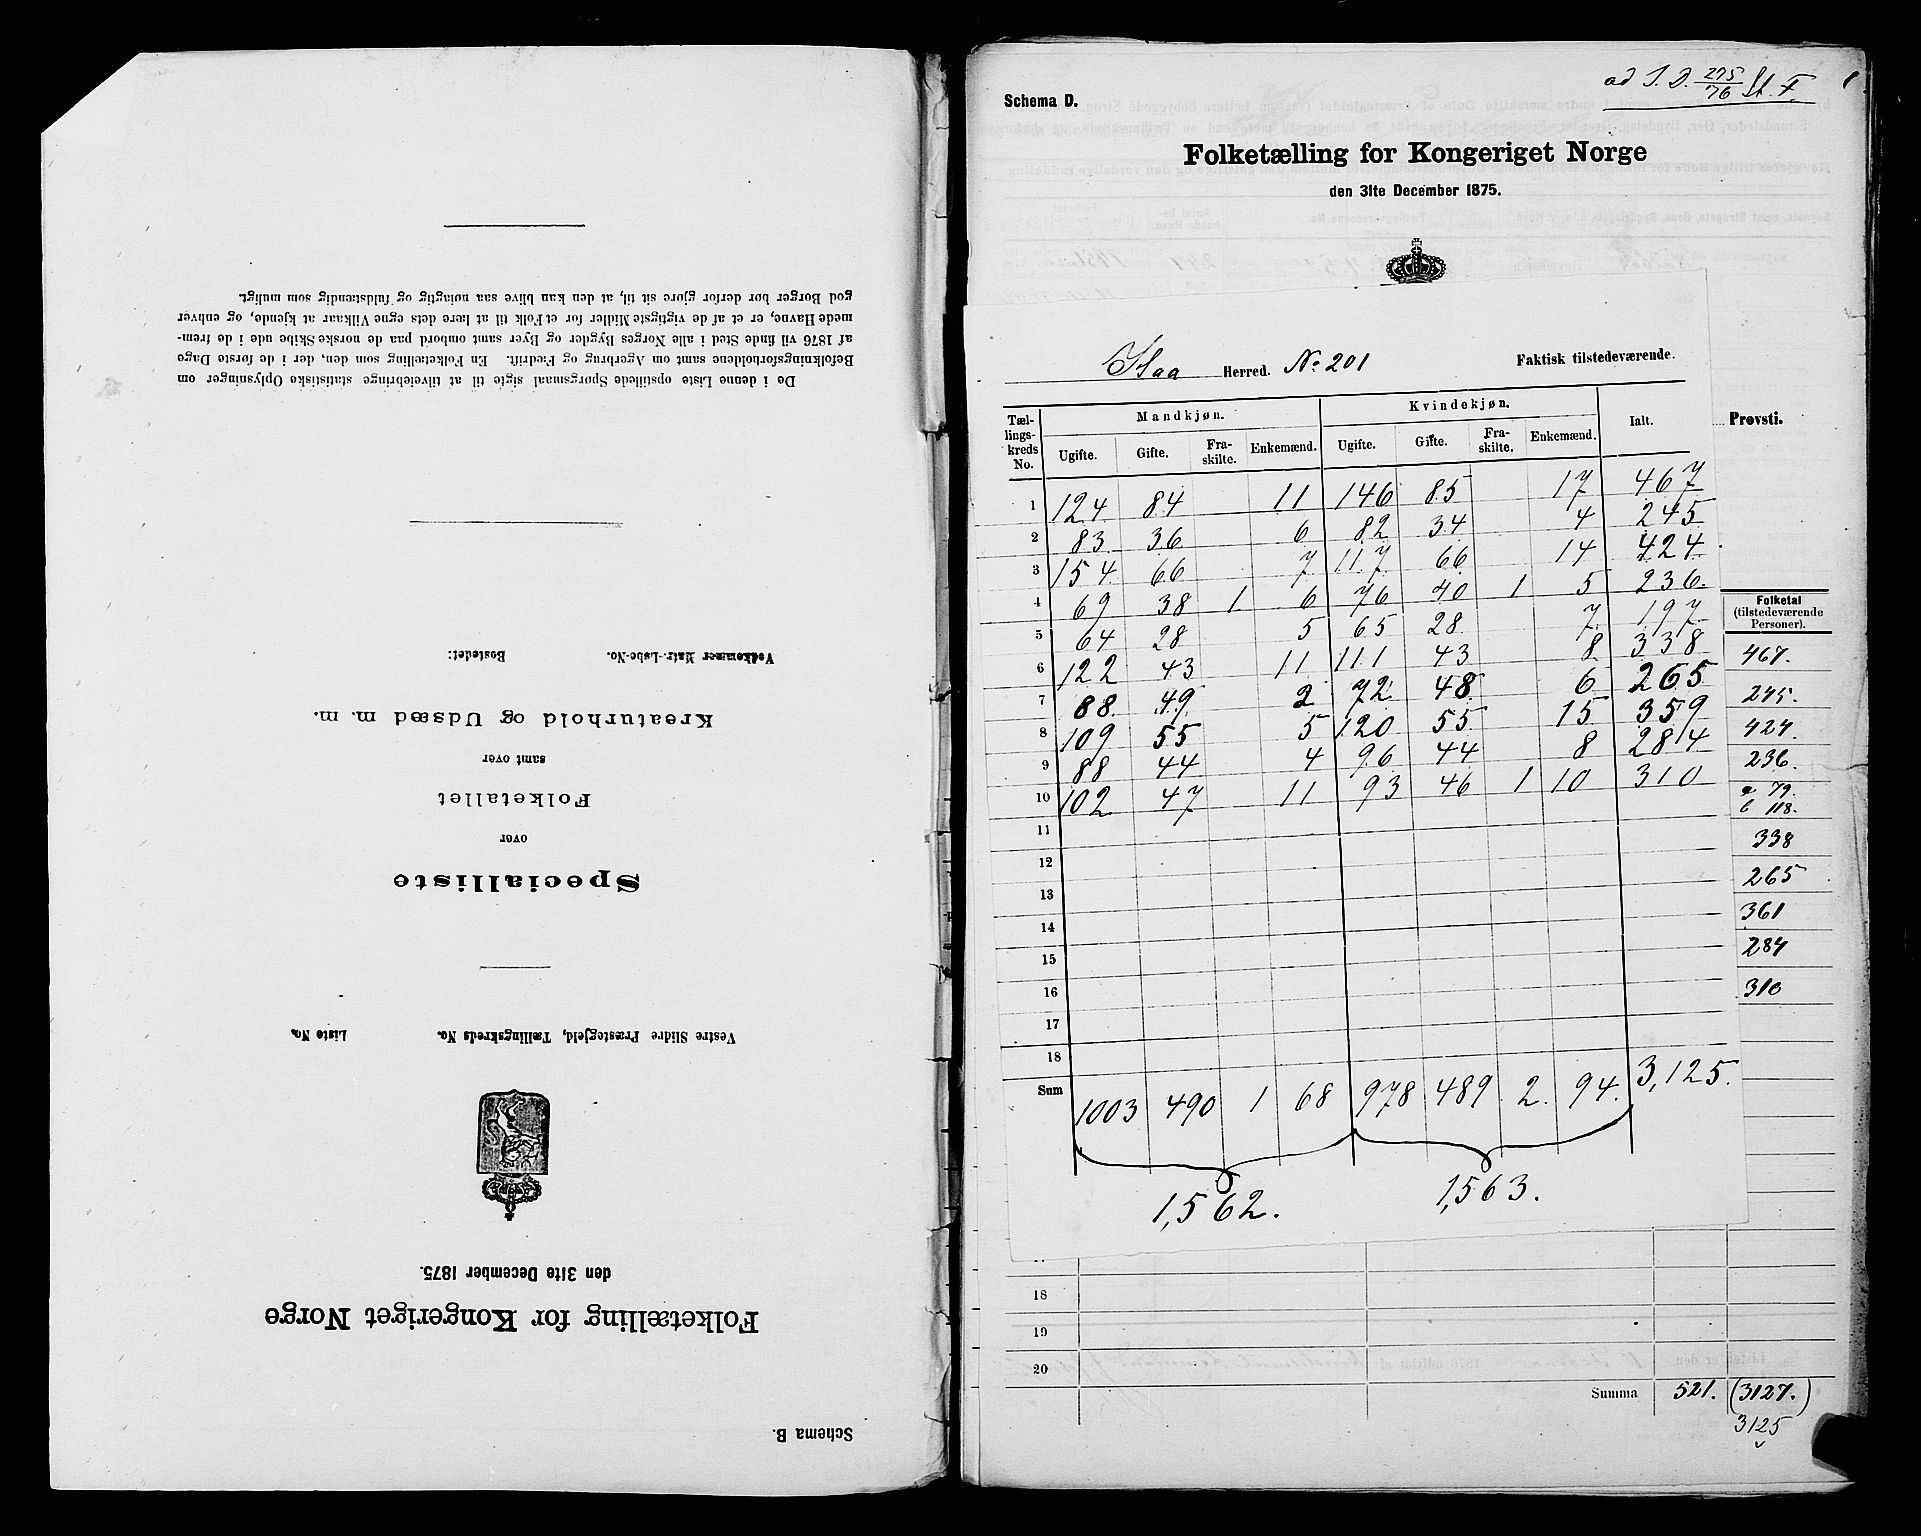 Schema B.
Folketælling for Kongeriget Norge
den 31te December 1875.
Vestre Slidre Præstegjeld, Tællingskreds No. Liste No.
Specialliste
over
Folketallet
samt over
Kreaturhold og Udsæd m. m.
Vedkommer Matr.-Løbe-No. Bostedet:
De i denne Liste opstillede Spørgsmaal sigte til at tilveiebringe statistiske Oplysninger om
Befolkningsforholdene samt om Agerbrug og Fædrift. En Folketælling som den, der i de første Dage
af 1876 vil finde Sted i alle Norges Bygder og Byer samt ombord paa de norske Skibe ude i de frem-
mede Havne, er et af de vigtigste Midler for et Folk til at lære dets egne Vilkaar at kjende, og enhver
god Borger bør derfor gjøre sit til, at den kan blive saa nøiagtig og fuldstændig som muligt.
ad S. D. 275/76 St. F
Schema D.
Folketælling for Kongeriget Norge
den 31te December 1875.
Herred. No. 201 Faktisk tilstedeværende.
Tæl-lings-kreds No. Mandkjøn. Kvindekjøn. Ialt. Provsti.
Ugifte. Gifte. Fra-skilte. Enkemænd. Ugifte. Gifte. Fra-skilte. Enkemænd.
1 124 84 11 146 85 17 467
2 83 36 6 82 34 4 245
3 154 66 7 117 66 14 424
4 69 38 1 6 76 40 1 5 236.
5 64 28 5 65 28 7 197
6 122 43 11 111 43 8 338
7 88 49 2 72 48 6 265
8 109 55 5 120 55 15 359
9 88 44 4 96 44 8 284
10 102 47 11 93 46 1 10 310
11
12
13
14
15
16
17
18
Sum 1003 490 1 68 978 489 2. 94. 3,125.
1,562. 1,563.
Folketal
(tilstedeværende
Personer).
467.
245.
424.
236.
a 79.
b 118.
338
265
361
284
310
18
19
20
Summa 521. (3127.)
3125